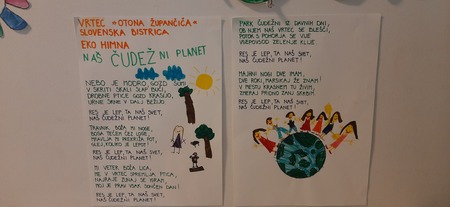 VRTEC "OTONA ŽUPANČIČA"
SLOVENSKA BISTRICA
EKO HIMNA
NAŠ ČUDEŽNI PLANET
NEBO JE MODRO, GOZD ŠUMI,
V SKRITI SKALI SLAP BUČI,
DROBNE PTICE GOZD KRASIJO,
URNE SRNE V DALJ BEŽIJO.
RES JE LEP, TA NAŠ SVET,
NAŠ ČUDEŽNI PLANET!
TRAVNIK BOŽA MI NOGE,
BOSA TEČEM ČEZ
MAVRICA MI PREKRIŽA POT,
GLEJ, KOLIKO JE LEPOT!
RES JE LEP, TA NAŠ SVET,
NAŠ ČUDEŽNI PLANET!
TU VETER BOŽA LICA,
ME V VRTEC SPREMLJA PTICA,
NAJRAJE ZUNAJ SE IGRAM,
MOJ JE PRAV VSAK SONČEN DAN!
RES JE LEP, TA NAŠ SVET,
NAŠ ČUDEŽNI PLANET!
PARK ČUDEŽNI IZ DAVNIH DNI,
OB NJEM NAŠ VRTEC SE BLEŠČI,
POTOK S POHORJA SE VIJE
VSEPOVSOD ZELENJE KLIJE.
RES JE LEP, TA NAŠ SVET,
NAŠ ČUDEŽNI PLANET!
MAJHNI NOGI DVE IMAM,
DVE ROKI, MARSIKAJ ŽE ZNAM!
V MESTU KRASNEM TU ŽIVIM,
ZMERAJ PRIDNO ZANJ SKRBIM.
RES JE LEP, TA NAŠ SVET,
NAŠ ČUDEŽNI PLANET!